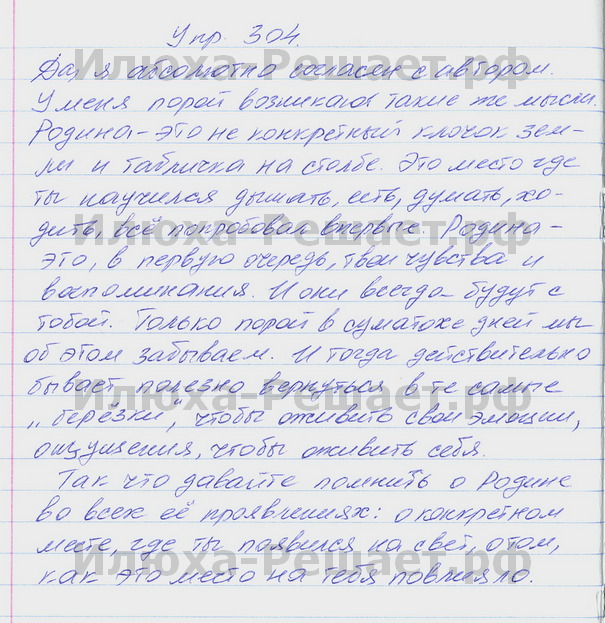 Упр. 304.
Да, я абсолютно согласен с автором.
У меня порой возникают такие же мысли.
Родина - это не конкретный клочок зем-
ли и табличка на столбе. Это место где
ты научился дышать, есть, думать, хо-
дить, всё попробовал впервые. Родина -
это, в первую очередь, твои чувства и
воспоминания. И они всегда будут с
тобой. Только порой в суматохе дней мы
об этом забываем. И тогда действительно
бывает полезно вернуться в те самые
„берёзки", чтобы оживить свои эмоции,
ощущения, чтобы оживить себя.
Так что давайте помнить о Родине
во всех её проявлениях: о конкретном
месте, где ты появился на свет, о том,
как это место на тебя повлияло.
Илюха-Решает.рф
Илюха-Решает.рф
Илюха-Решает.рф
Илюха-Решает.рф